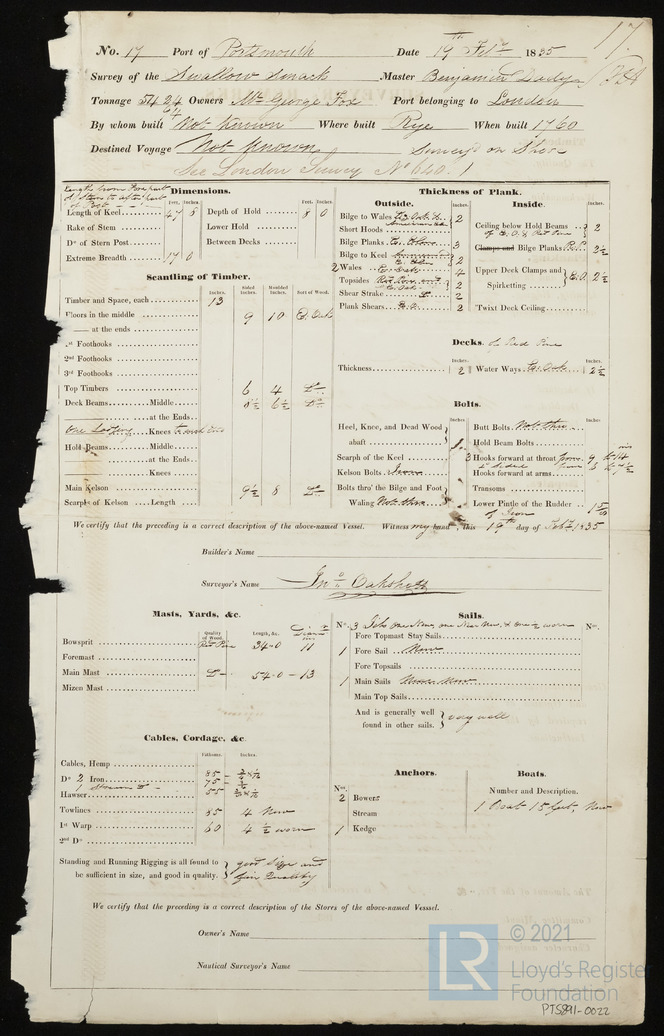 17
No. 17 Port of Portsmouth Date 19th Feby 1835
Survey of the Swallow Smack Master Benjamin
Tonnage 54 24/64 Owners Mr George Fox Port belonging to London
By whom built Not Known Where built Rye When built 1760
Destined Voyage Not Known Surveyd on Shore
See London Survey No 640.
Dimensions.
Feet. Inches. Feet. Inches.
Length of Keel 47 Depth of Hold 8 0
Rake of Stem Lower Hold
Do of Stern Post Between Decks
Extreme Breadth 17 0
Scantling of Timber.
Inches. Sided Inches. Moulded Inches. Sort of Wood.
Timber and Space, each 13
Floors in the middle 9 10 E. Oak
— at the ends
1st Foothooks
2nd Foothooks
3rd Foothooks
Top Timbers 6 4 Do
Deck Beams Middle 6½ Do
at the Ends
One Knees
Hold Beams Middle
at the Ends
Knees
Main Kelson 9½ 8 Do
Scarphs of Kelson Length
Thickness of Plank.
Outside. Inches.
Bilge to Wales 2
Short Hoods
Bilge Planks 3
Bilge to Keel 2
2 Wales E. Oak 4
Topsides 2
Shear Strake Do 2
Plank Shears E.O. 2
Inside. Inches.
Ceiling below Hold Beams of E. O. & Red Pine 2
Clamps and Bilge Planks R.P. 2½
Upper Deck Clamps and Spirketting E.O. 2½
Twixt Deck Ceiling
Decks. of Red Pine
Thickness 2 Water Ways E. Oak 2½
Bolts.
Heel, Knee, and Dead Wood abaft
Scarph of the Keel
Kelson Bolts Iron
Bolts thro' the Bilge and Foot Waling Not thro
Butt Bolts Not thro
Hold Beam Bolts
3 Hooks forward at throat
Hooks forward at arms
Transoms
Lower Pintle of the Rudder of Iron
We certify that the preceding is a correct description of the above-named Vessel. Witness my hand, this 19th day of Feby 1835
Builder's Name
Surveyor's Name Jno Oakshott
Masts, Yards, &c.
Quality of Wood. Length, &c.
Bowsprit Red Pine 34-0 11
Foremast
Main Mast Do 54-0-13
Mizen Mast
Sails.
No. 3 Jibs one New, one worn No.
Fore Topmast Stay Sails
1 Fore Sail New
Fore Topsails
1 Main Sails New
Main Top Sails
And is generally well found in other sails. very well
Cables, Cordage, &c.
Fathoms. Inches.
Cables, Hemp
Do 2 Iron 85
75
Hawser 55
Towlines 85 4 New
1st Warp 60 4½ worn
2nd Do
Standing and Running Rigging is all found to be sufficient in size, and good in quality. good Size and Quality
Anchors.
Nos.
2 Bowers
Stream
1 Kedge
Boats.
Number and Description.
1 Boat 15 feet, New
We certify that the preceding is a correct description of the Stores of the above-named Vesssel.
Owner's Name
Nautical Surveyor's Name
LR © 2021
Lloyd's Register
Foundation
PTS891-0022